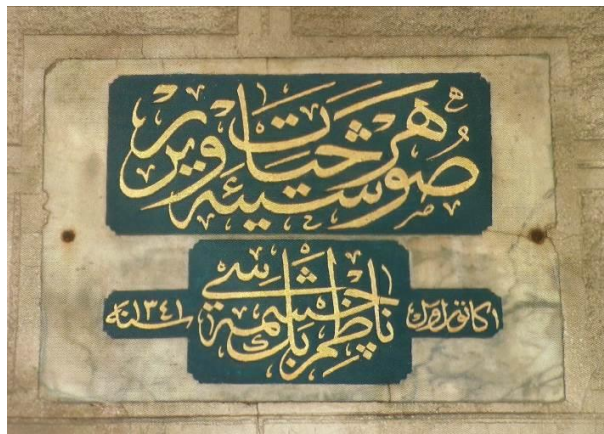 صو هر شيئه حيات ويرر
ناظم بك چشمه سي
١ كانون اول
سنه ١٣٤١